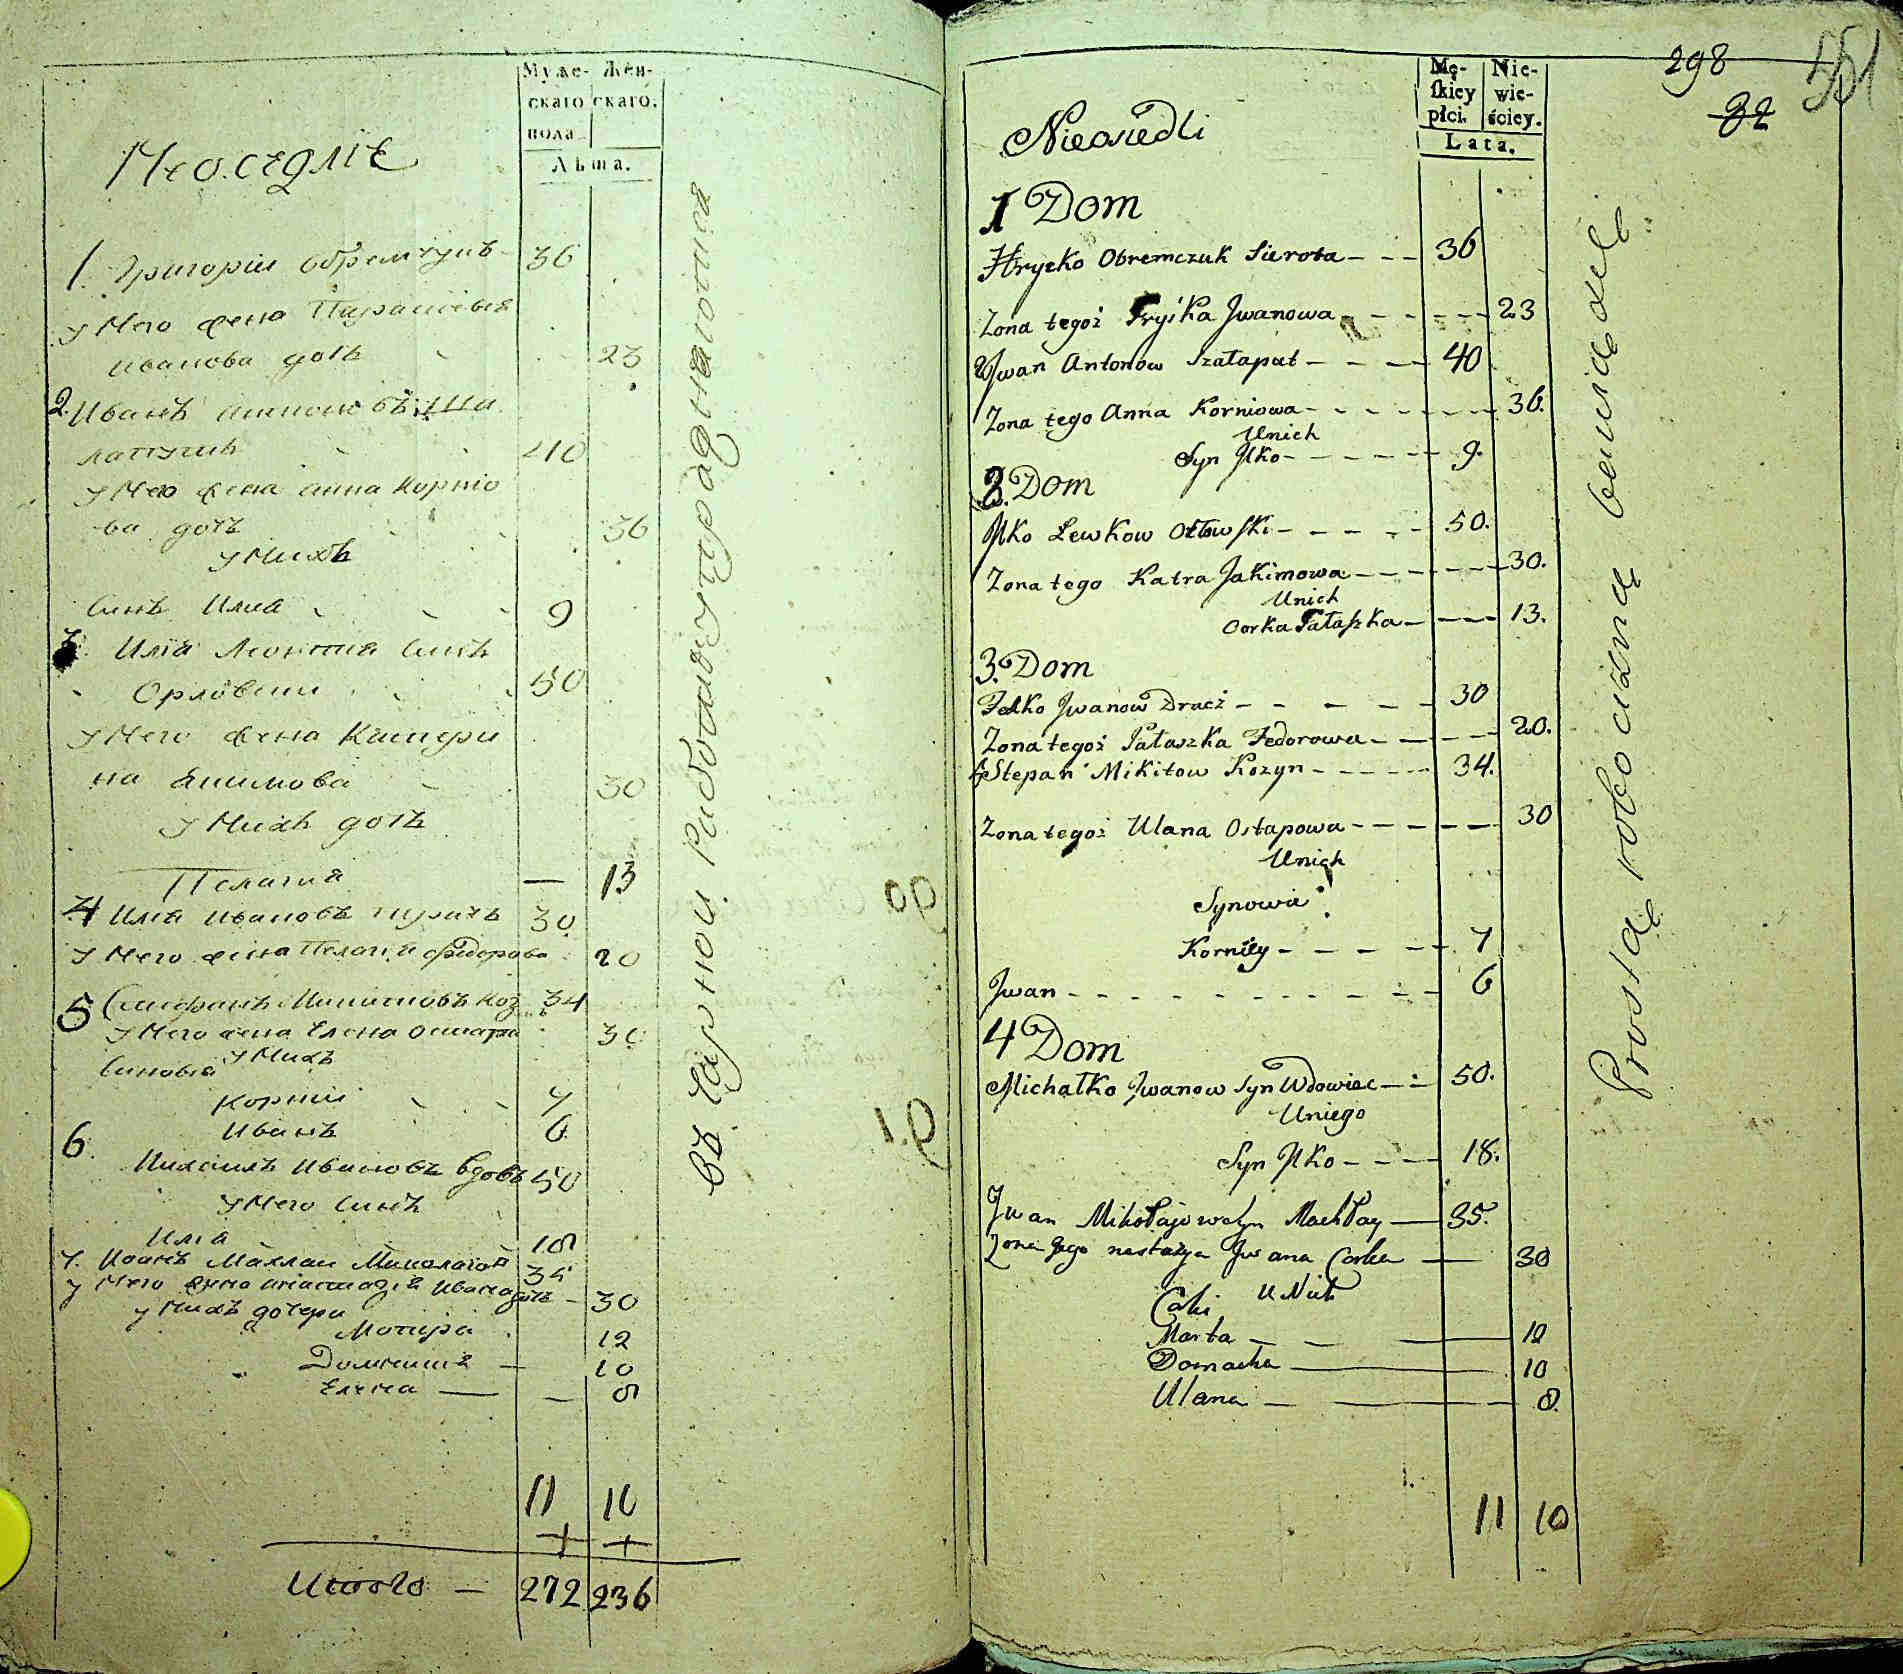 Муже-
скаго
пола
Жен-
скаго.
Лѣта.
Неоседліе
1. Григорій Обремчукъ 36
у Него жена Парасковія
иванова дочь 23
2. Иванъ Антоновъ Ша
лапутъ 40
у Него жена Анна Корніо
ва дочь 36
у Нихъ
Синъ Илиа 9
3. Илиа Леонтиа Синъ
Орловский 50
у Него жена Катери
на Якимова 30
у Нихъ дочь
Пелагиа — 13
4 Илиа Ивановъ 30
у Него жена Пелагиа Федорова 20
5 Стефанъ Никитовъ Коз 34
у Него жена Елена Остапа 30
у Нихъ
Синовиа
Корнии 7
Иванъ 6
6. Михаилъ Ивановъ вдовъ 50
у Него Синъ
Илиа 18
7. Иванъ Махлаи Николаговъ 35
у Него жена Анастазіа Ивана дочь — 30
у Нихъ дочери
12
10
Елена — — 8
11 10
Итого — 272 236
въ Чорной Работѣ упражняются
298
32
551
Mę-
skiey
płci.
Nie-
wie-
ściey.
Lata.
Nieosiedli
1 Dom
Hryćko Obremczuk Sierota — — — 36
Zona tegoż Pryśka Jwanowa — — — 23
2 Jwan Antonow Szałaput — — — 40
Zona tego Anna Korniowa — — — 36.
Unich
Syn Jlko — — — 9.
2. Dom
Jlko Lewkow Orłowski — — — 50.
Zona tego Katra Jakimowa — — — 30.
Unich
Corka Pałaszka — — — 13.
3. Dom
Jwanow Dracz — — — 30
Zona tegoż Pałaszka Fedorowa — — — 20.
Stepan Mikitow Kozyn — — — 34.
Zona tegoż Ulana Ostapowa — — — 30
Unich
Synowie
Korniey — — — 7
Jwan — — — 6
4 Dom
Michałko Jwanow Syn Wdowiec — — 50.
Uniego
Syn Jlko — — — 18.
Jwan Mikołajow Syn Machłay — 35.
Zona jego nastazya Jwana Corka — 30
U Nich
Corki
Marta — — — 12
Domacha — 10
Ulana — — — 8.
11 10
Prostą robocizną bawią się